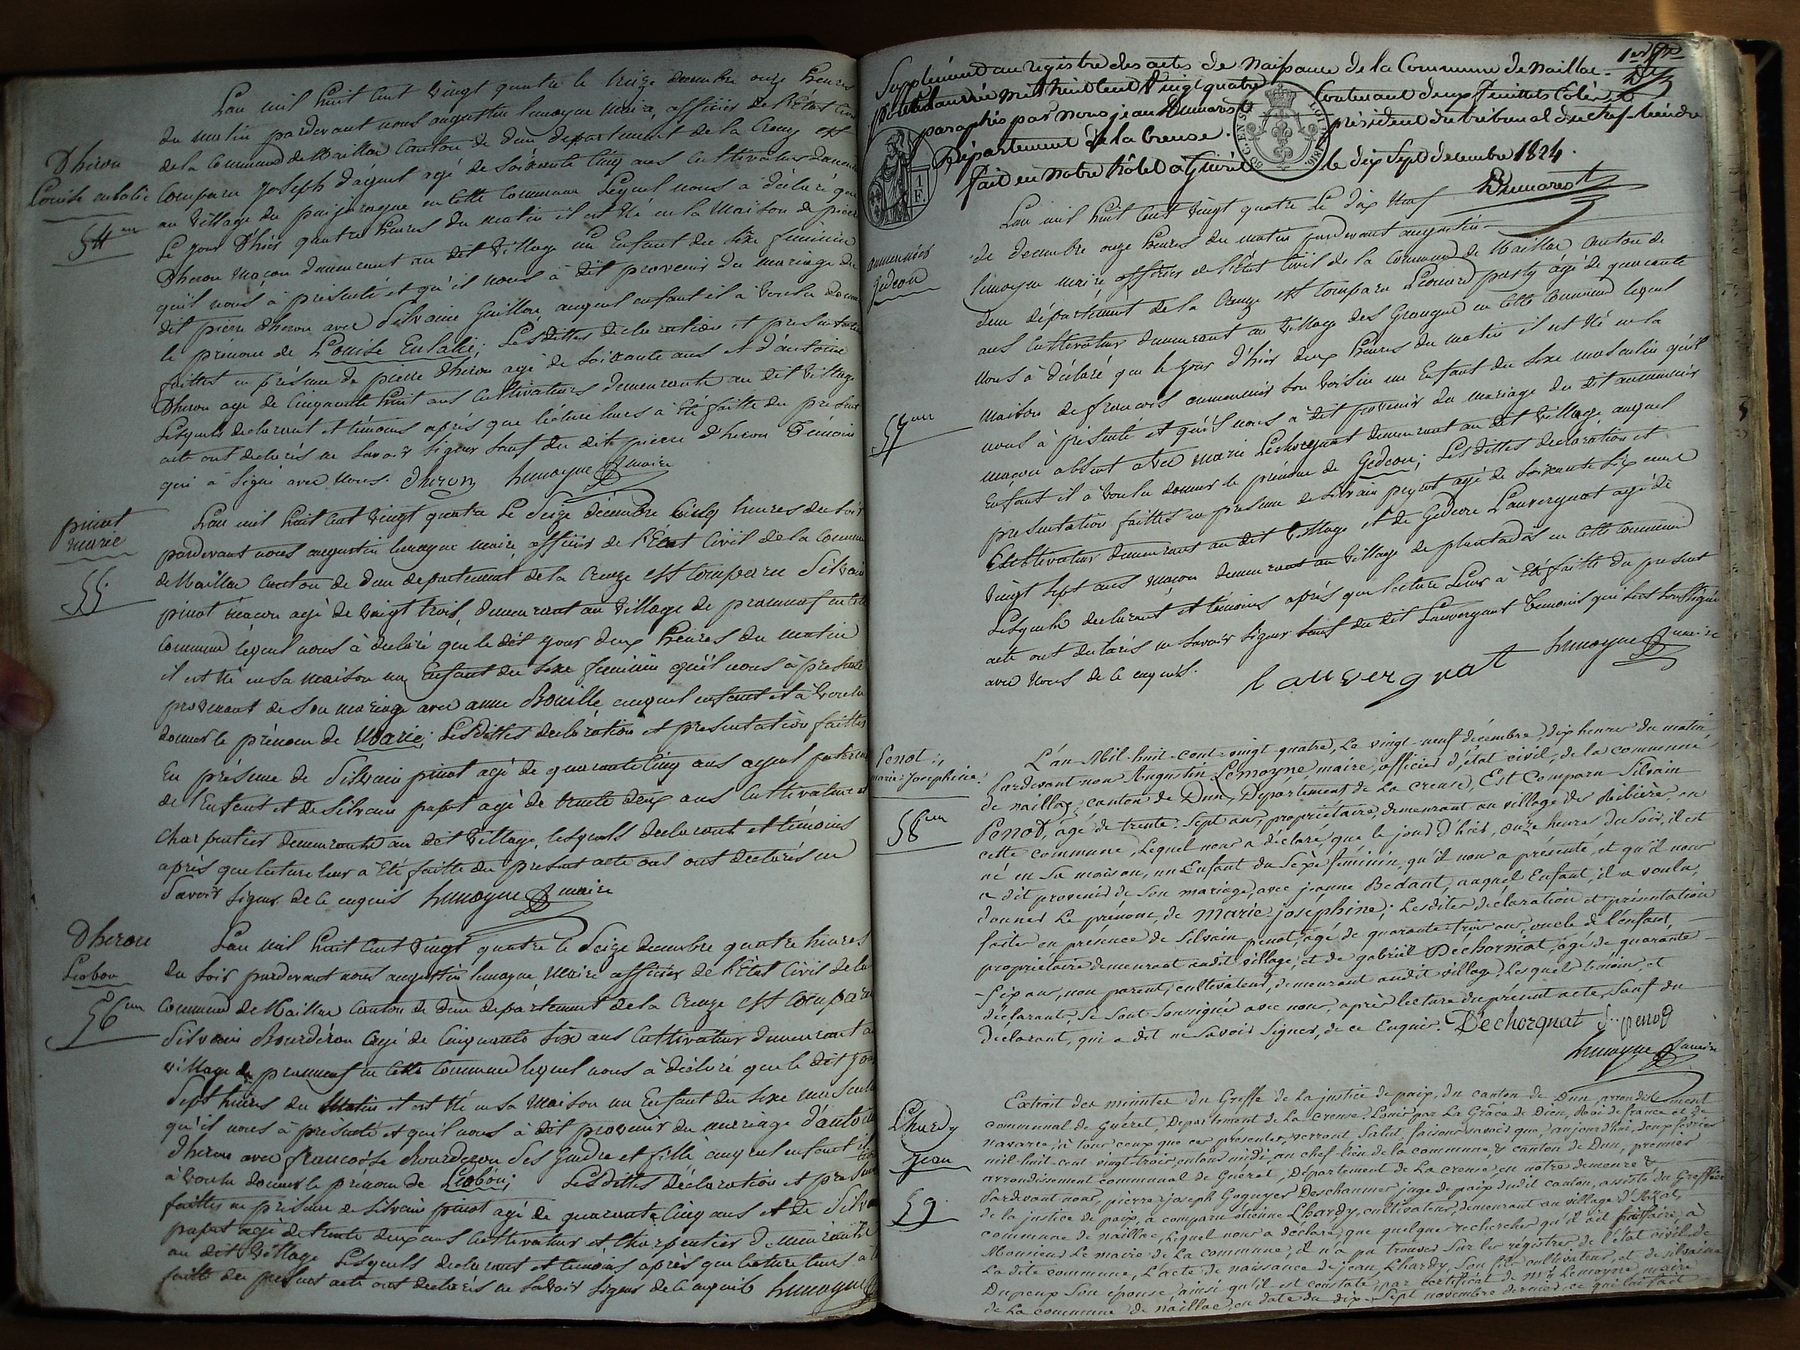 Lan mil huit cent vingt quatre le treize decembre onze heures
du matin pardevant nous augustin lemoyne maire, officier de l'Etat Civil
de la Commune de Naillac Canton de dun departement de la Creuze est
Dheron
Louise eulalie
54eme
Comparu Joseph dagut agé de soixante Cinq ans Cultivateur demeurant
au village du en cette Commune Lequel nous à déclaré que
Le jour d'hier quatre heures du matin il est Né en la Maison de pierre
Dheron maçon demeurant au dit village un Enfant du sexe feminin
qu'il nous à présenté et qu'il nous à dit provenir du mariage du
dit pierre dheron avec Silvaine Guillon auquel enfant il à voulu donner
le prénom de Louise Eulalie; Lesdittes declaration et presentation
faittes en présence de pierre dheron agé de soixante ans et d'antoine
Dheron agé de Cinquante huit ans Cultivateurs demeurants au dit village
Lesquels declarant et témoins après que lecture leurs à Eté faitte du présent
acte ont declarés ne savoir signer sauf du dit pierre dheron Temoin
qui à signé avec Nous. dheron lemoyne maire
pinot
marie
55.
Lan mil huit cent vingt quatre Le seize décembre Cinq heures du soir
pardevant nous augustin lemoyne maire, officier de l'Etat Civil de la Commune
de Naillac Canton de dun departement de la Creuze est comparu Silvain
pinot maçon agé de vingt trois, demeurant au village de en cette
Commune lequel nous à déclaré que le dit jour deux heures du matin
il est Né en sa maison un Enfant du sexe feminin qu'il nous à présenté
provenant de son mariage avec anne auquel enfant il à voulu
donner le prénom de Marie; Lesdittes declaration et presentation faittes
En présence de Silvain pinot agé de quarante Cinq ans ayeul paternel
de l'Enfant et de Silvain agé de trente deux ans Cultivateur et
charpentier demeurants au dit village, lesquels declarant et témoins
après que lecture leur à Eté faitte du present acte ont declarés ne
savoir signer de ce enquis lemoyne maire
Dheron
Leobon
56eme
Lan mil huit cent vingt quatre le seize decembre quatre heures
du soir pardevant nous augustin lemoyne, maire officier de l'Etat Civil de la
Commune de Naillac Canton de dun departement de la Creuze est comparu
Silvain Bourderon agé de Cinquante six ans Cultivateur demeurant au
village de en cette Commune lequel nous à déclaré que le dit jour
sept heures du Matin il est Né en sa Maison un Enfant du sexe masculin
qu'il nous à présenté et qu'il nous à dit provenir du mariage d'antoine
dheron avec francoise Bourderon ses gendre et fille auquel enfant il
à voulu donner le prenom de Léobon; Lesdittes déclaration et presentation
faittes en présence de Silvain pinot agé de quarante Cinq ans et de Silvain
agé de trente deux ans Cultivateur et Charpentier demeurants
au dit village Lesquels declarant et témoins après que lecture leurs à été
faitte du present acte ont declarés ne savoir signer de ce enquis lemoyne
1er
Supplément au registre des actes de Naissance de la Commune de Naillac
pour l'année mil huit cent vingt quatre Contenant deux feuillets Cotés et
paraphés par nous jean Dumarest président du tribunal du chef lieu du
Département de la Creuse.
fait en notre hôtel à Guéret le dix sept decembre 1824.
Dumarest
1
F.
aumenier
Gideon
57eme
Lan mil huit cent vingt quatre Le dix neuf
de decembre onze heures du matin pardevant augustin
lemoyne maire officier de l'Etat Civil de la Commune de Naillac Canton de
dun département de la Creuze est comparu Léonard pasty agé de quarante
ans Cultivateur demeurant au village des en cette Commune lequel
nous à déclaré que le jour d'hier deux heures du matin il est Né en la
maison de francois aumenier son voisin un Enfant du sexe masculin qu'il
nous à présenté et qu'il nous à dit provenir du mariage du dit aumenier
maçon absent avec marie Lechorgnat demeurant au dit village, auquel
Enfant il à voulu donner le prénom de Gédeon; Lesdittes déclaration et
presentation faittes en presence de Silvain peyrot agé de soixante six ans
Cultivateur demeurant au dit village et de Gideon Lauvergnat agé de
vingt sept ans maçon demeurant au village de plantadas en cette Commune
Lesquels declarant et témoins après que lecture leurs à Eté faitte du present
acte ont declarés ne savoir signer sauf du dit Lauvergnat Temoin qui s'est soussigné
avec nous de ce enquis. lauvergnat lemoyne maire
Penot
marie: Josephine
58eme
L'an Mil-huit-cent-vingt quatre, le vingt-neuf décembre, dix heures du matin
Pardevant nous Augustin Lemoyne, maire, officier d'état civil, de la commune
de naillac, canton de Dun, Département de la creuse, Est Comparu Silvain
Penot, agé de trente-sept ans, propriétaire, demeurant au village des Ribière, en
cette commune, Lequel nous a déclaré, que le jour d'hier, onze heures du soir, il est
né en sa maison, un Enfant du Sexe féminin, qu'il nous a présenté, et qu'il nous
a dit provenir de son mariage, avec jeanne Bedant, auquel Enfant, il a voulu,
donner Le prénom, de marie joséphine; Lesdites déclaration et présentation
faites en présence de Silvain penot, agé de quarante trois ans, oncle de l'enfant,
propriétaire demeurant audit village, et de gabriel Dechorgnat, agé de quarante-
six ans, non parent, cultivateur, demeurant audit village, Lesquels témoins, et
déclarant, se sont soussignés avec nous, après lecture du présent acte, sauf du
déclarant, qui a dit ne savoir signer, de ce Enquis. Dechorgnat S. penot
lemoyne maire
Lhardy
Jean
59.
Extrait des minutes du Greffe de la justice de paix, du canton de Dun, arrondissement
communal de Guéret, Département de la Creuse. Louis par La Grâce de Dieu, Roi de france et de
navarre, à tous ceux que ces présentes, verront Salut, faisons savoir que, aujourd'hui, douze février
mil-huit-cent vingt-trois, midi, au chef-lieu de la commune, & canton de Dun, premier
arrondissement communal de Guéret, Département de La creuse, en notre demeure &
Pardevant nous, pierre joseph Goguyer Deschaumes juge de paix dudit canton, assisté du Greffier
de la justice de paix, a comparu étienne Lhardy, cultivateur, demeurant au village d'
commune de naillac, Lequel nous a déclaré, que quelque recherche qu'il ait fait faire, à
Monsieur Le maire de La commune, il n'a pu trouver sur les registres de l'état civil de
La dite commune, L'acte de naissance de jean Lhardy, son fils cultivateur, et de silvaine
Dupeux son épouse, ainsi qu'il est constaté par certificat de Mr Lemoyne, maire
de La commune de naillac, en date du dix-sept novembre dernier,